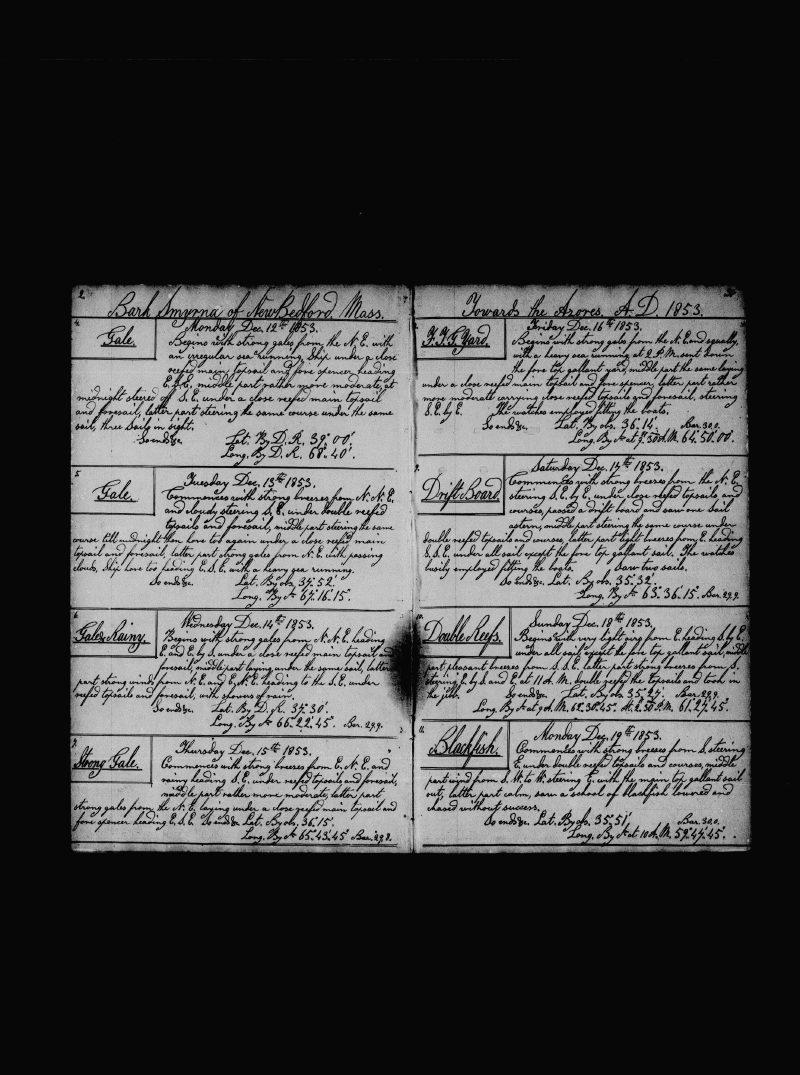 2
Bark Smyrna of New Bedford, Mass.
4.
Gale.
Monday Dec. 12th 1853.
Begins with strong gales from the N. E. with
an irregular sea running, Ship under a close
reefed main topsail and fore spencer heading
E.S.E., middle part rather more moderate, at
midnight steered off S. E. under a close reefed main topsail
and foresail, latter part steering the same course under the same
sail, three Sails in sight.
So ends &c. Lat. By D. R. 39°.00'
Long. By D. R. 68°.40'.
5.
Gale.
Tuesday Dec. 13th 1853.
Commences with strong breezes from N. N. E.
and cloudy steering S. E. under double reefed
topsails and foresail, middle part steering the same
course till midnight then hove too again under a close reefed main
topsail and foresail, latter part strong gales from N. E. with passing
clouds, Ship hove too heading E. S. E. with a heavy sea running.
So ends &c. Lat. By obs. 37°.52'
Long. By Ar 67°.16'.15".
6.
Gale & Rainy.
Wednesday Dec. 14th 1853.
Begins with strong gales from N. N. E. heading
E. and E. by S. under a close reefed main topsail and
foresail, middle part laying under the same sail, latter
part strong winds from N. E. and E. N. E. heading to the S. E. under
reefed topsails and foresail, with showers of rain.
So ends &c. Lat. By D. R. 37°.30'.
Long. By Ar 66°.22'.45". Bar. 29.9.
7.
Strong Gale.
Thursday Dec. 15th 1853.
Commences with strong breezes from E. N. E. and
rainy heading S. E. under reefed topsails and foresail,
middle part rather more moderate, latter part
strong gales from the N. E. laying under a close reefed main topsail and
fore spencer heading E. S. E. So ends &c. Lat. By obs. 36°.15'.
Long. By Ar 65°.43'.45". Bar. 29.8.
Towards the Azores, A. D. 1853.
8.
F. T. G. Yard.
Friday Dec. 16th 1853.
Begins with strong gales from the N. E. and squally,
with a heavy sea running at 2 P. M. sent down
the fore top gallant yard, middle part the same laying
under a close reefed main topsail and fore spencer, latter part rather
more moderate carrying close reefed topsails and foresail, steering
S. E. by E. The watches employed fitting the boats.
So ends &c. Lat. By obs. 36°.14'. Bar. 30.0.
Long. By Ar at 9.50 A. M. 64°.50'.00".
9.
Drift Board.
Saturday Dec. 17th 1853.
Commences with strong breezes from the N. E.
steering S. E. by E. under close reefed topsails and
courses, passed a drift board and saw one Sail
astern, middle part steering the same course under
double reefed topsails and courses, latter part light breezes from E. heading
S. S. E. under all sail except the fore top gallant sail. The watches
busily employed fitting the boats. Saw two sails.
So ends &c. Lat. By obs. 35°.32'.
Long. By Ar 63°.36'.15" Bar. 29.9.
10.
Double Reefs.
Sunday Dec. 18th 1853.
Begins with very light airs from E. heading S. by E.
under all sail except the fore top gallant sail, middle
part pleasant breezes from S. S. E. latter part strong breezes from S.
steering E. by S. and E. at 11 A. M. double reefed the topsails and took in
the jibb. So ends &c. Lat. By obs. 35°.27'. Bar. 29.9.
Long. By Ar at 9 A. M. 62°.30'.45" At 2.30 P. M. 61°.27'.45"
11.
Blackfish.
Monday Dec. 19th 1853.
Commences with strong breezes from S. steering
E. under double reefed topsails and courses, middle
part wind from S. W. to W. steering E. with the main top gallant sail
out, latter part calm, saw a school of blackfish lowered and
chased without success.
So ends &c. Lat. By obs. 35°.51' Bar. 30.0.
Long. By Ar at 10 A. M. 59°.47'.45".